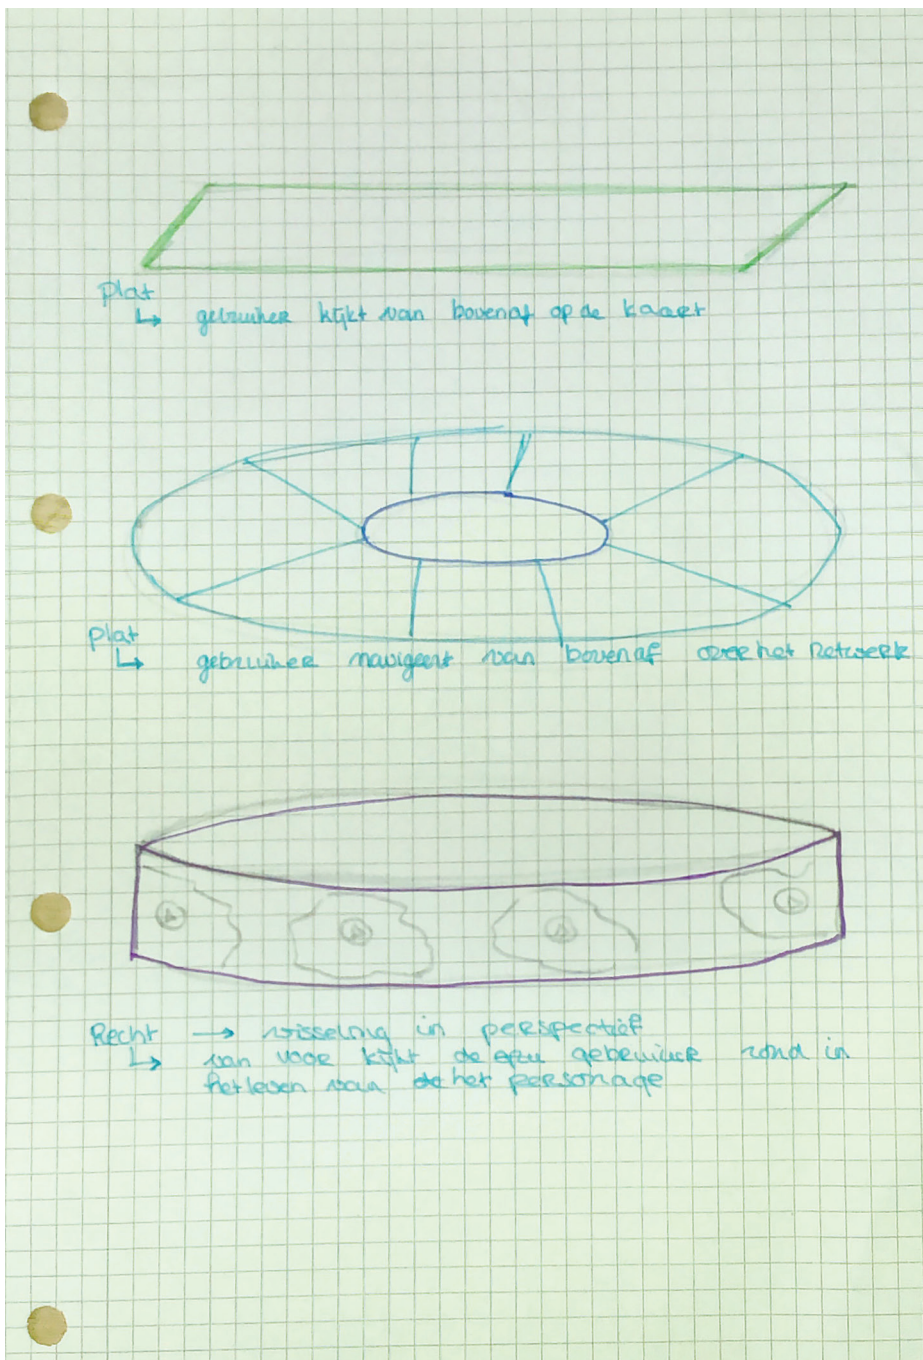 Plat
↳ gebruiker kijkt van bovenaf op de kaart
Plat
↳ gebruiker navigeert van bovenaf over het netwerk
Recht → wisselnig in perspectief
↳ van voor kijkt de gebruiker rond in
het leven van de het personage